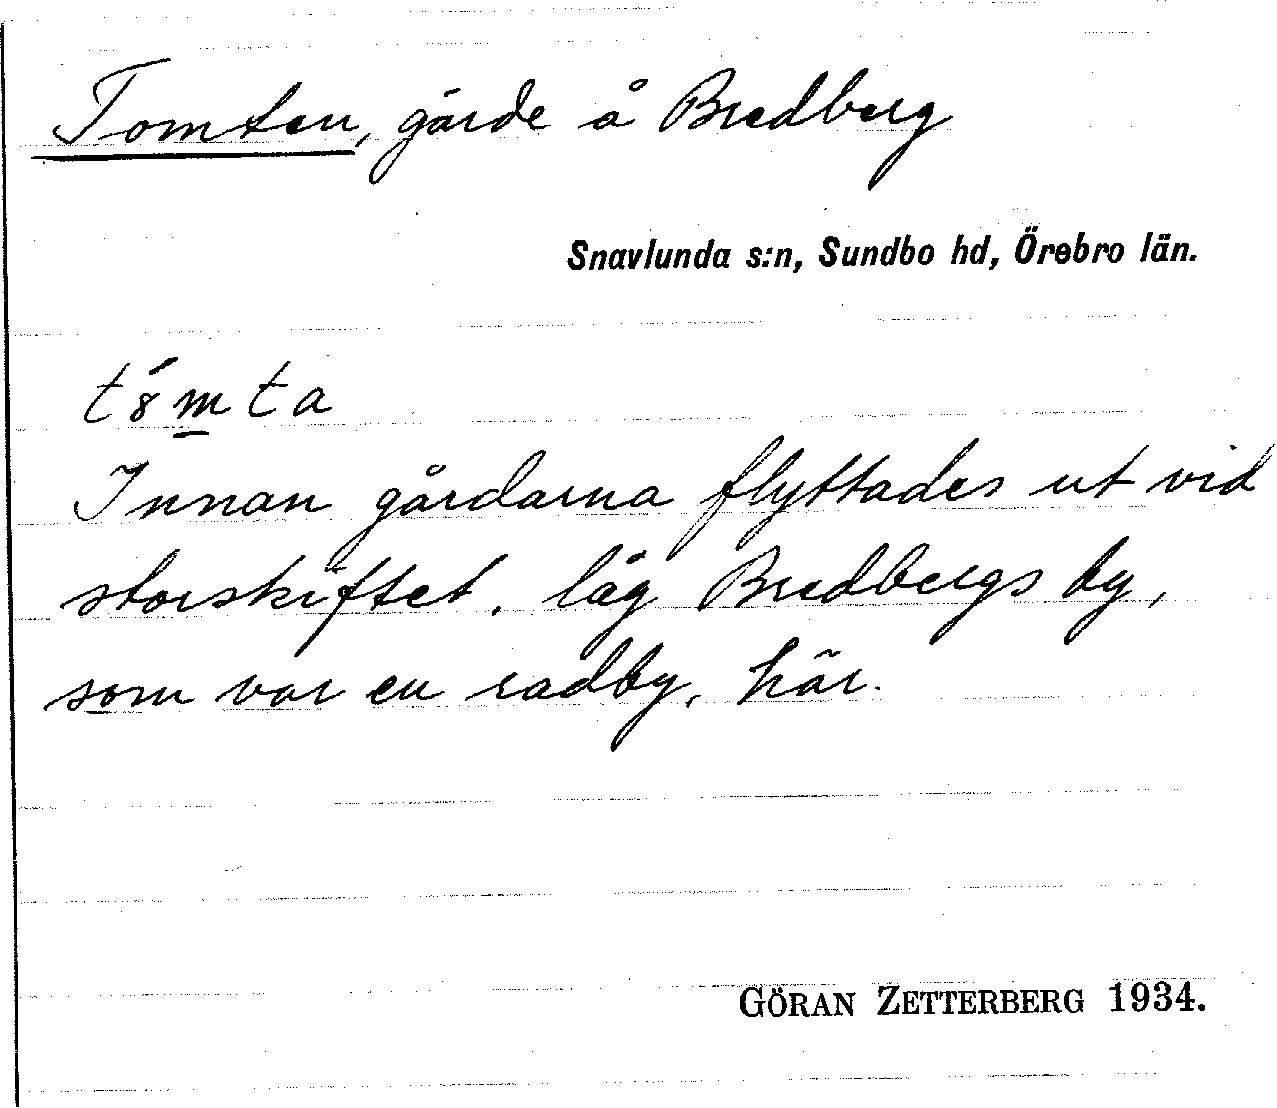 Tomten, gärde å Bredberg
Snavlunda s:n, Sundbo hd, Örebro län.
t8́m̲ta
Innan gårdarna flyttades ut vid
storskiftet, låg Bredbergs by,
som var en radby, här.
GÖRAN ZETTERBERG 1934.